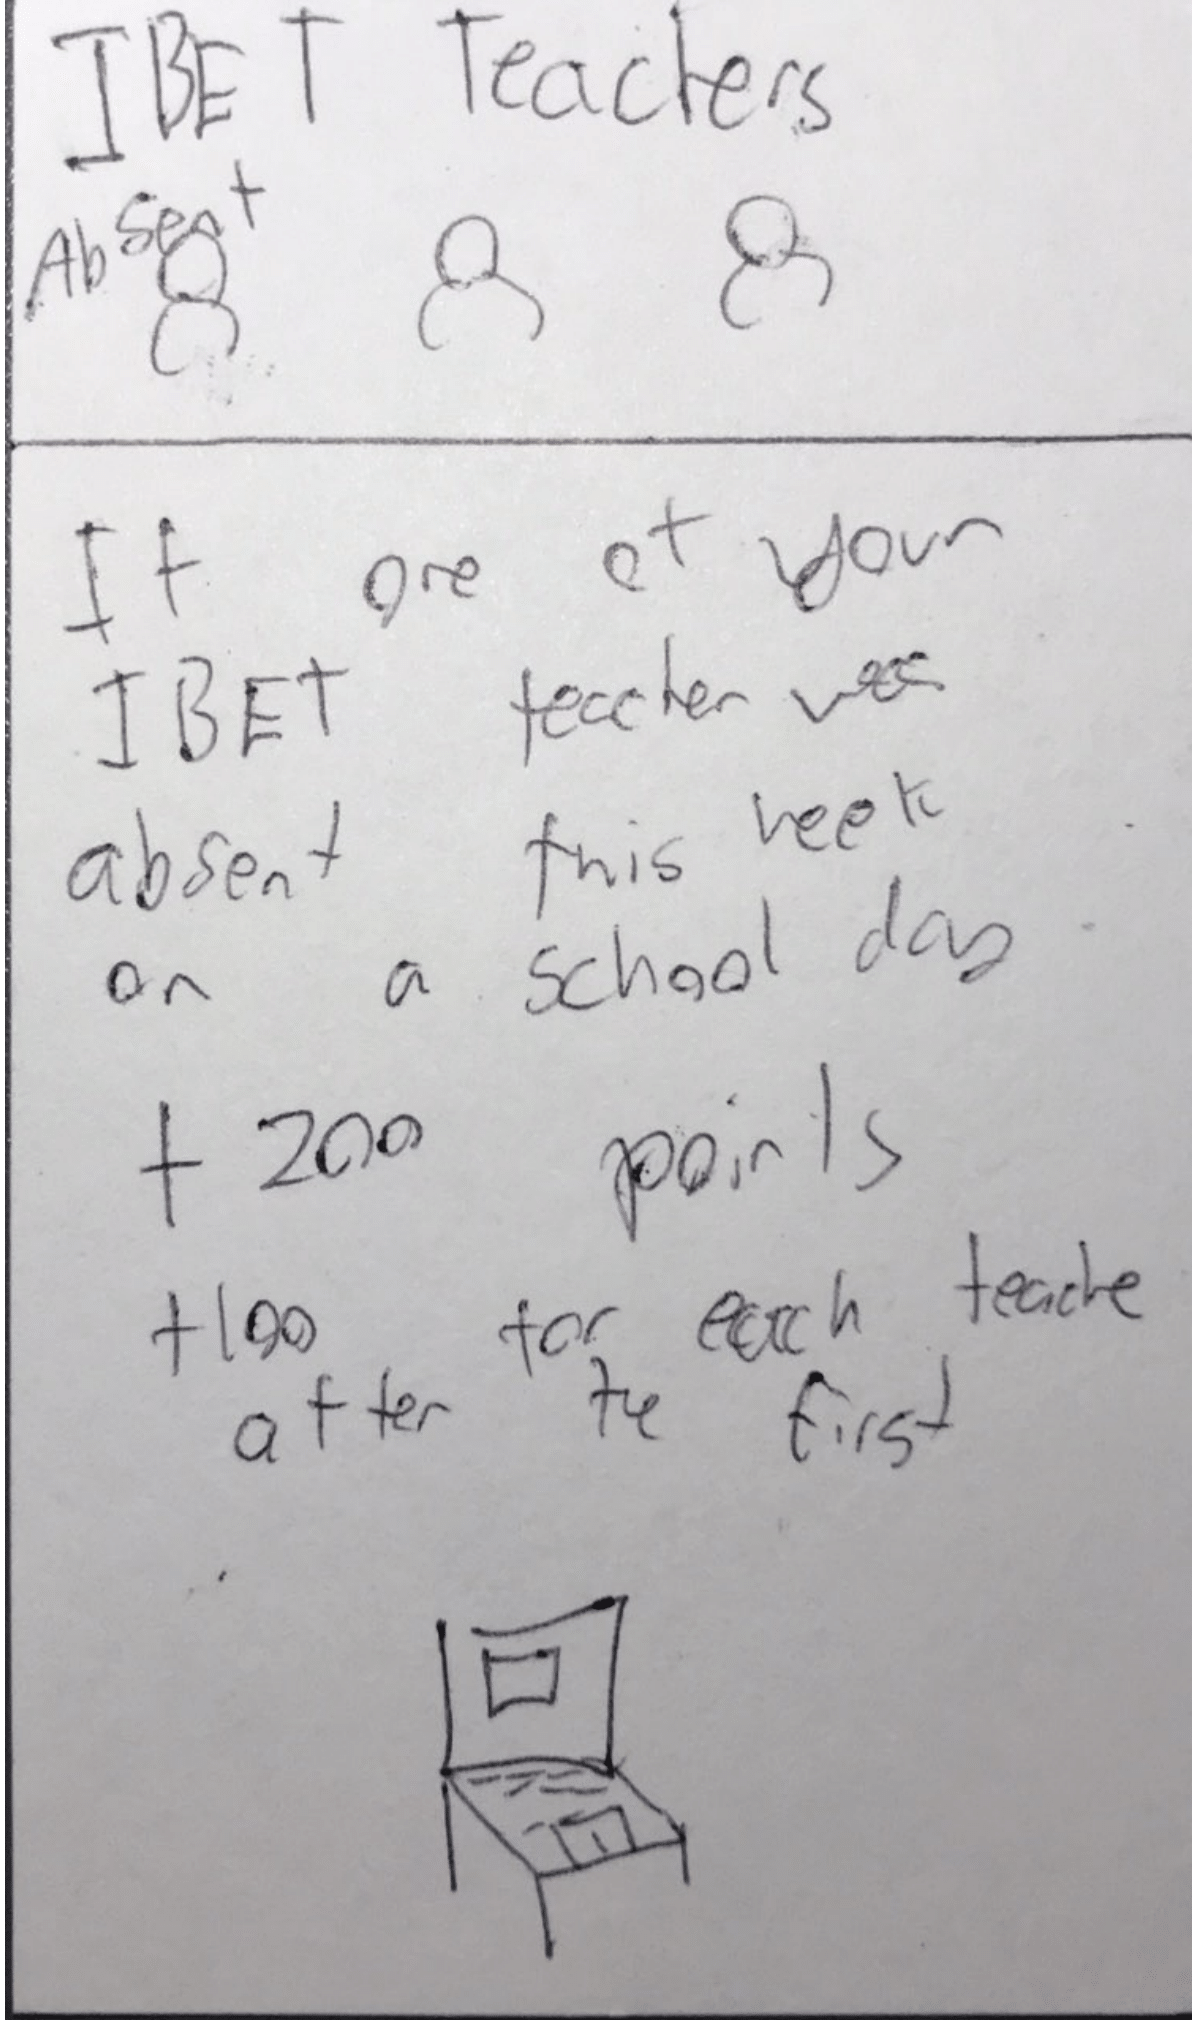 IBET Teachers
Absent
If one of your
IBET teacher was
absent this week
on a school day
+ 200 points
+100 for each teache
after te first